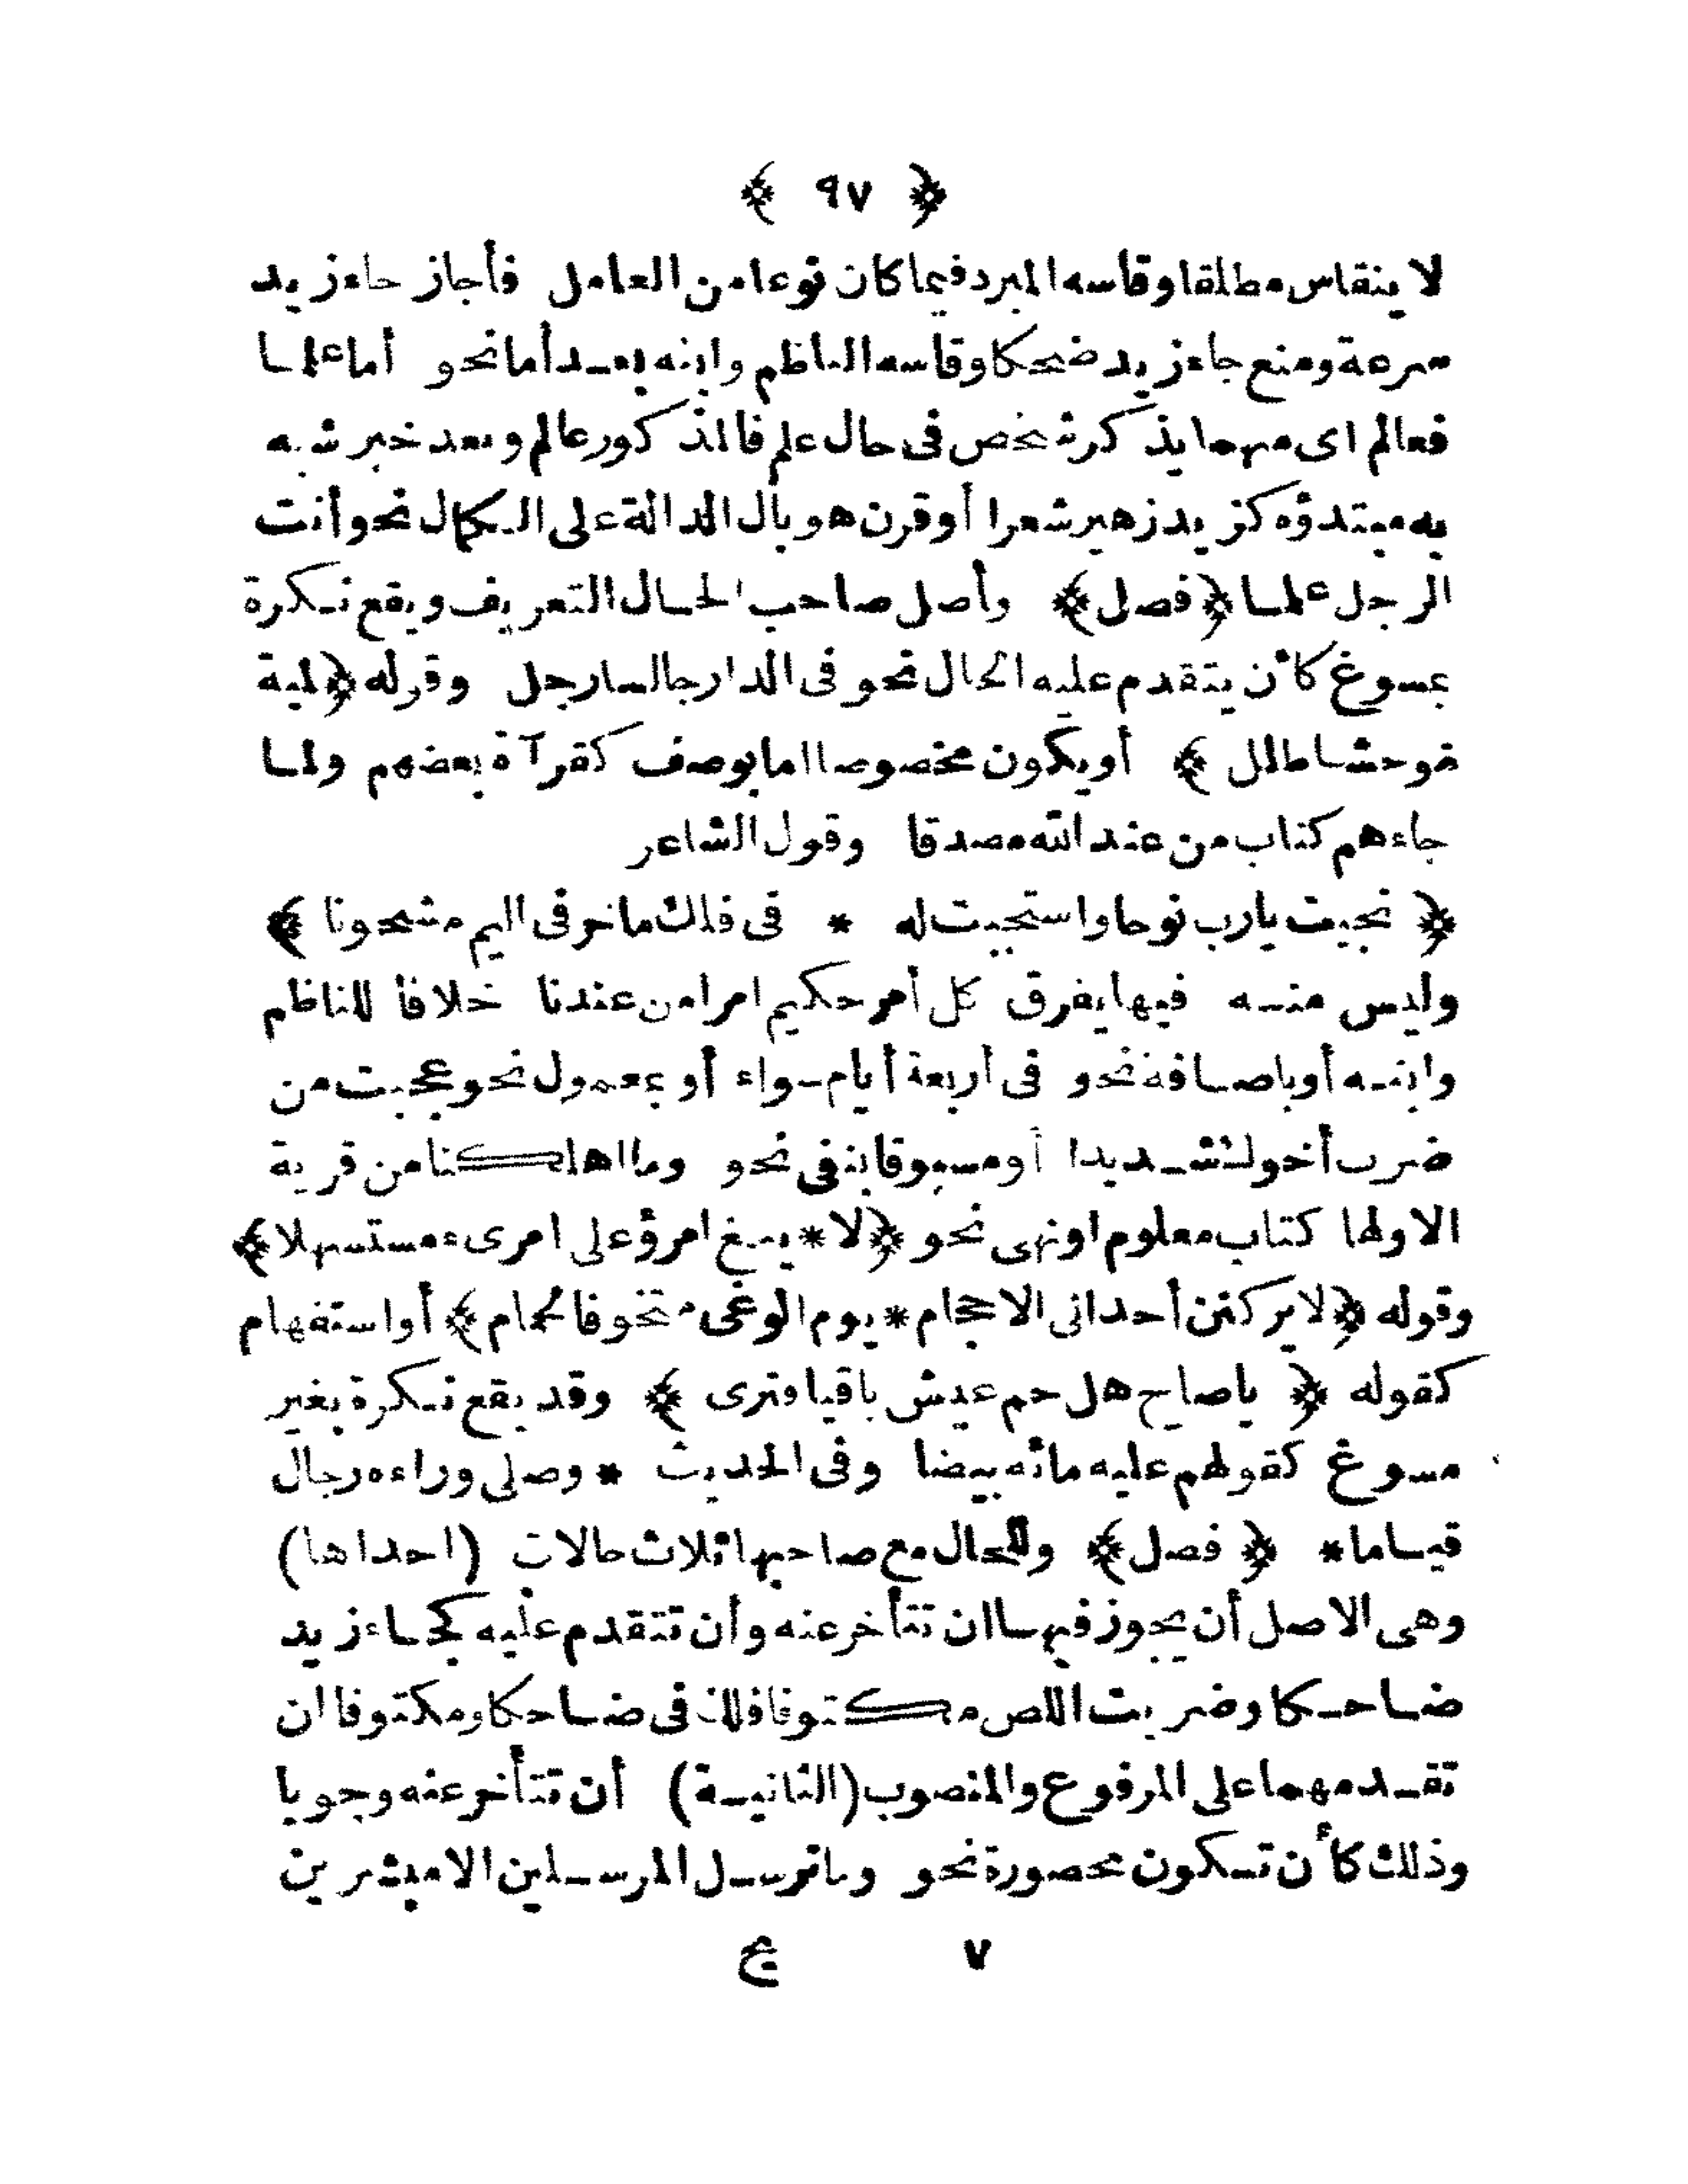 ﴿ ٩٧ ﴾
لا ينقاس مطلقا وقاسه المبرد فيما كان نوعا من العامل فأجاز جاء زيد
سرعة ومنع جاء زيد ضحكا وقاسه الناظم وابنه بعد أما نحو أما علما
فعالم اى مهما يذكر شخص فى حال علم فالمذكور عالم وبعد خبر شبه
به مبتدؤه كزيد زهير شعرا أو قرن هو بأل الدالة على الكمال نحو أنت
الرجل علما ﴿فصل﴾ وأصل صاحب الحال التعريف ويقع نكرة
بمسوغ كأن يتقدم عليه الحال نحو فى الدار جالسا رجل وقوله ﴿لمية
موحشا طلل ﴾ أو يكون مخصوصا اما بوصف كقرآءة بعضهم ولما
جاءهم كتاب من عند الله مصدقا وقول الشاعر
﴿ نجيت يارب نوحا واستجبت له * فى فلك ماخر فى اليم مشحونا ﴾
وليس منه فيها يفرق كل أمر حكيم امرا من عندنا خلافا للناظم
وابنه أو باضافة نحو فى أربعة أيام سواء أو بمعمول نحو عجبت من
ضرب أخوك شديدا أو مسبوقا بنفى نحو وما اهلكنا من قرية
الا ولها كتاب معلوم او نهى نحو ﴿لا * يبغ امرؤ على امرىء مستسهلا﴾
وقوله ﴿لا يركنن أحد الى الاحجام * يوم الوغى متخوفا لحمام﴾ أو استفهام
كقوله ﴿ ياصاح هل حم عيش باقيا فترى ﴾ وقد يقع نكرة بغير
مسوغ كقولهم عليه مائه بيضا وفى الحديث * وصلى وراءه رجال
قياما * ﴿ فصل﴾ وللحال مع صاحبها ثلاث حالات (احداها)
وهى الاصل أن يجوز فيها ان تتأخر عنه وأن تتقدم عليه كجاء زيد
ضاحكا وضربت اللص مكتوفا فلك فى ضاحكا ومكتوفا ان
تقدمهما على المرفوع والمنصوب (الثانية) أن تتأخر عنه وجوبا
وذلك كأن تكون محصورة نحو وما نرسل المرسلين الا مبشرين
٧ ع